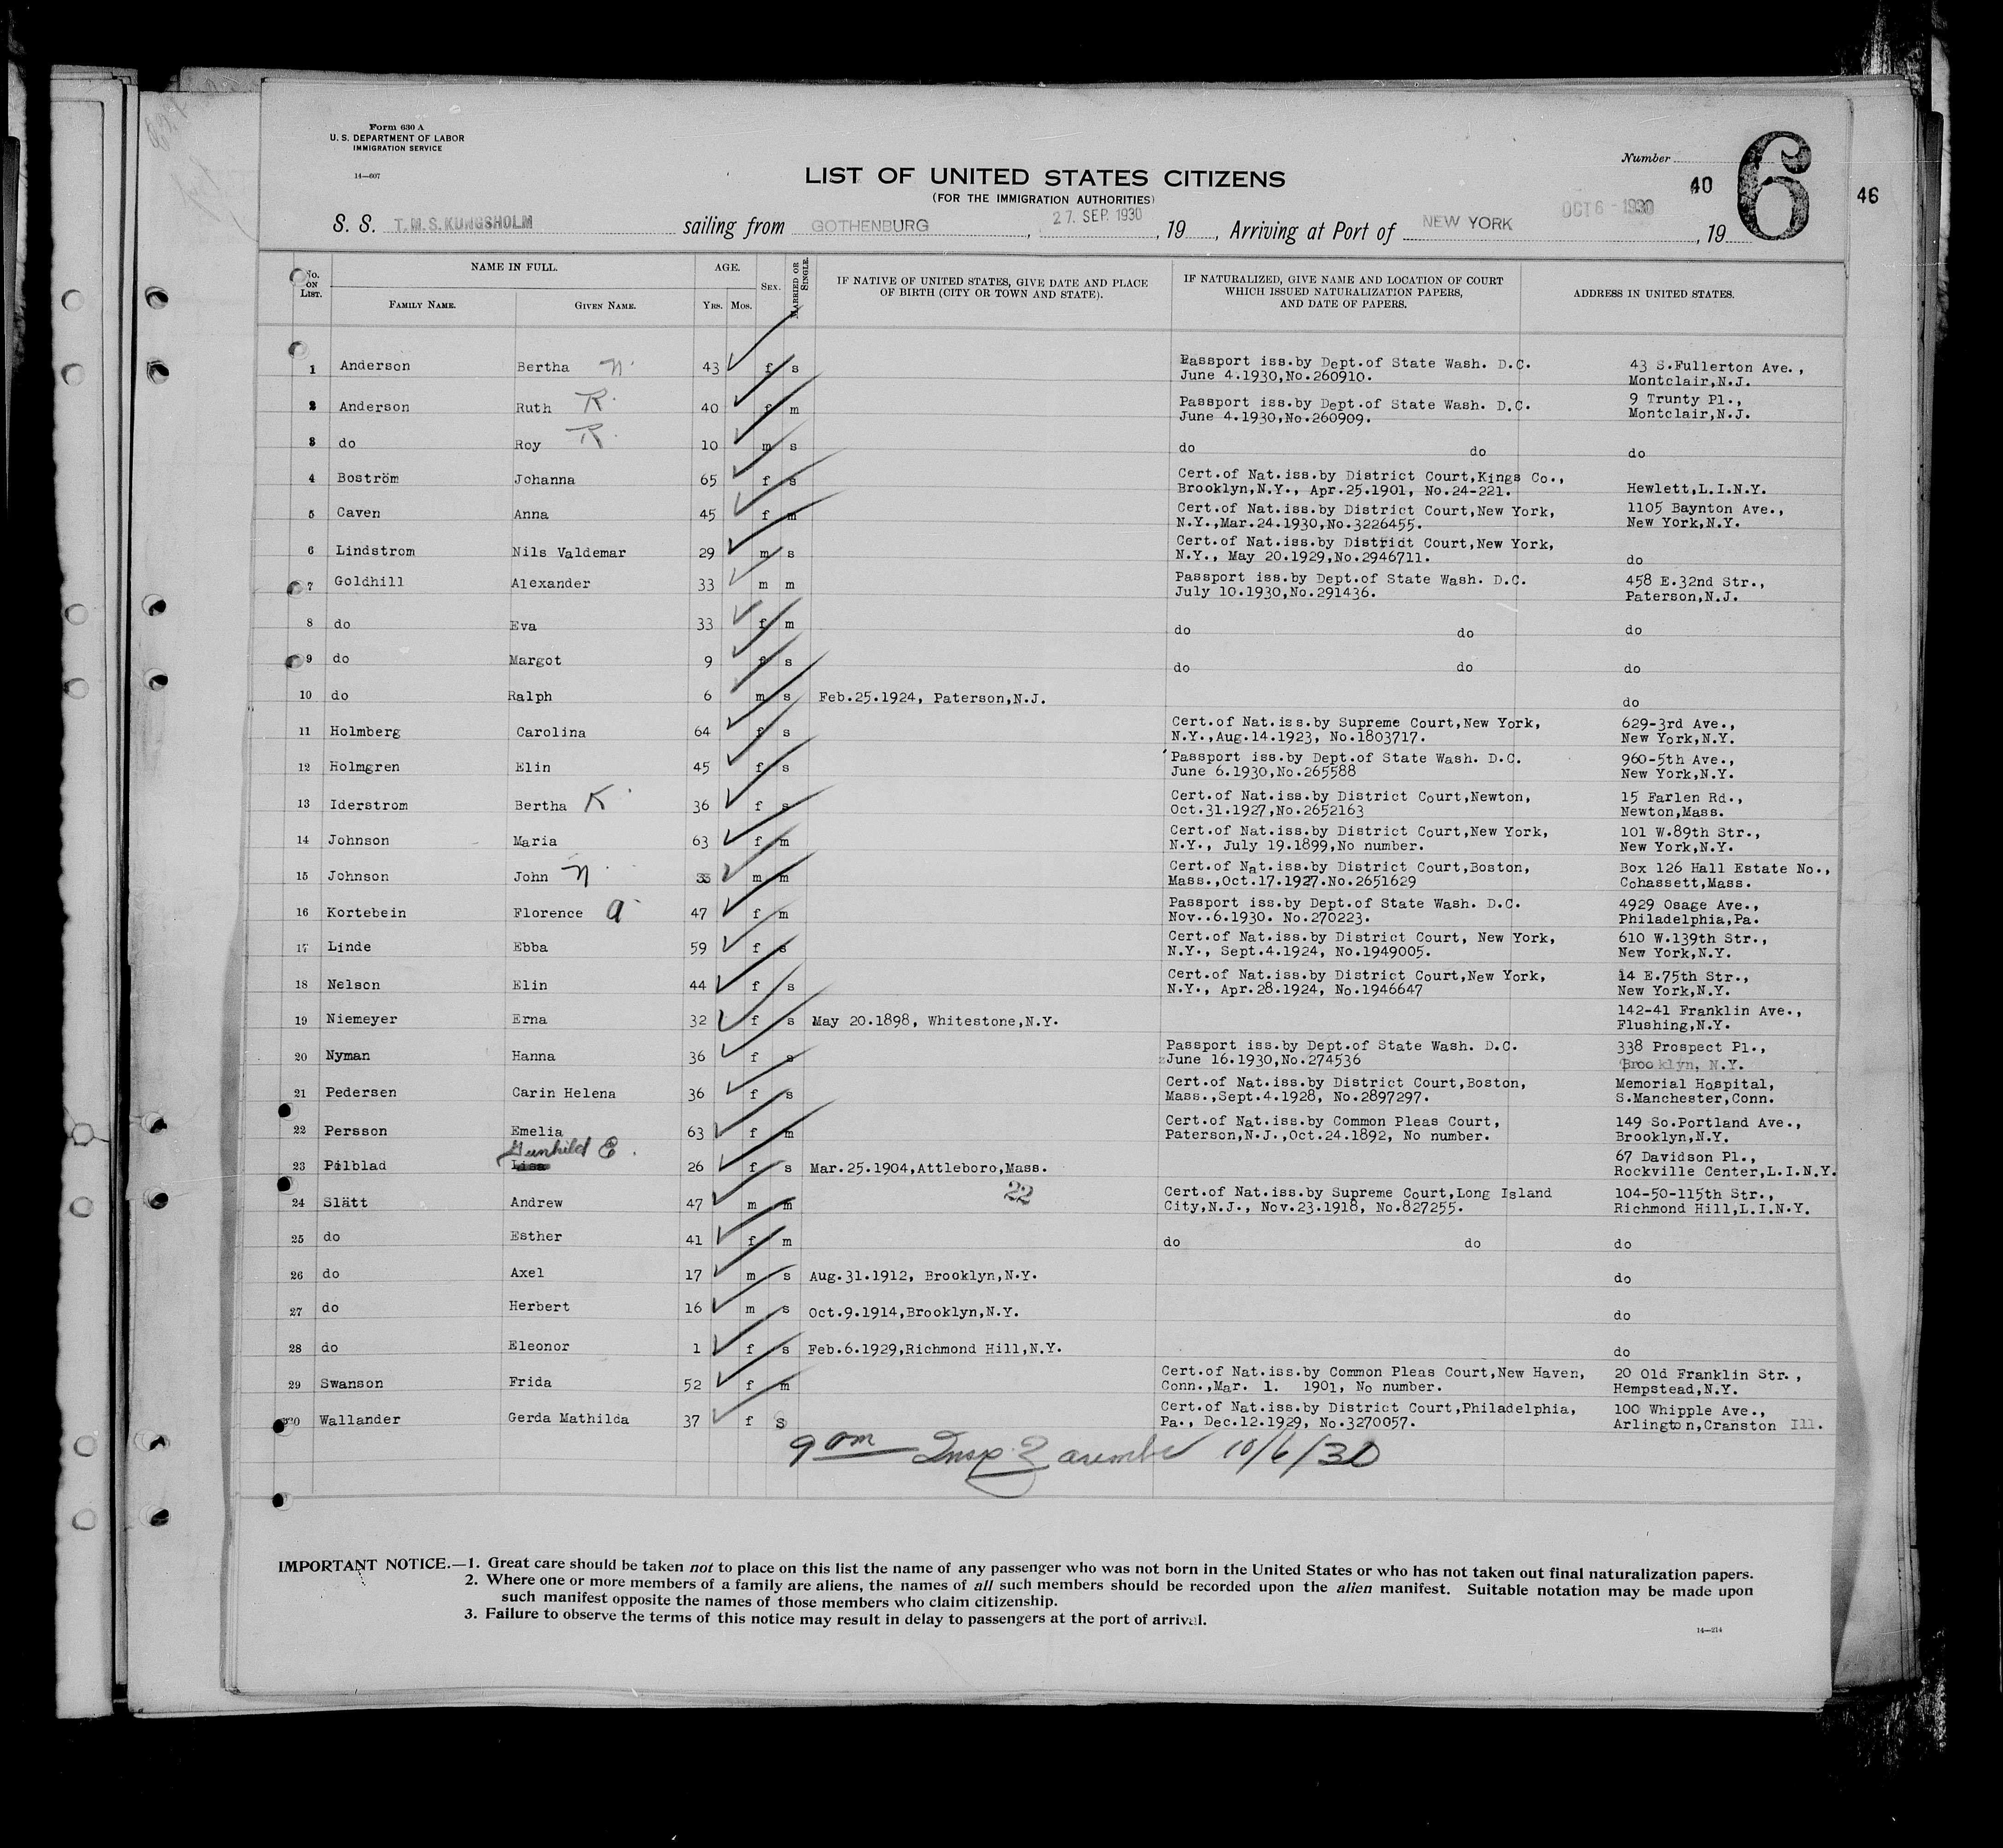 Form 630 A
U. S. DEPARTMENT OF LABOR
IMMIGRATION SERVICE
14—607
Number
LIST OF UNITED STATES CITIZENS
(FOR THE IMMIGRATION AUTHORITIES)
40 6 46
S. S. T.M.S. KUNGSHOLM sailing from GOTHENBURG, 27. SEP. 1930, 19 , Arriving at Port of NEW YORK OCT 6 - 1930, 19
No. ON LIST. NAME IN FULL. FAMILY NAME. GIVEN NAME. AGE. YRS. MOS. SEX. MARRIED OR SINGLE. IF NATIVE OF UNITED STATES, GIVE DATE AND PLACE OF BIRTH (CITY OR TOWN AND STATE). IF NATURALIZED, GIVE NAME AND LOCATION OF COURT WHICH ISSUED NATURALIZATION PAPERS, AND DATE OF PAPERS. ADDRESS IN UNITED STATES.
1 Anderson Bertha n. 43 f s Passport iss.by Dept.of State Wash. D.C. 43 S.Fullerton Ave.,
June 4.1930,No.260910. Montclair,N.J.
2 Anderson Ruth R. 40 f m Passport iss.by Dept.of State Wash. D.C. 9 Trunty Pl.,
June 4.1930,No.260909. Montclair,N.J.
3 do Roy R. 10 m s do do do
4 Boström Johanna 65 f s Cert.of Nat.iss.by District Court,Kings Co.,
Brooklyn,N.Y., Apr.25.1901, No.24-221. Hewlett,L.I.N.Y.
5 Caven Anna 45 f m Cert.of Nat.iss.by District Court,New York, 1105 Baynton Ave.,
N.Y.,Mar.24.1930,No.3226455. New York,N.Y.
6 Lindstrom Nils Valdemar 29 m s Cert.of Nat.iss.by District Court,New York,
N.Y., May 20.1929,No.2946711. do
7 Goldhill Alexander 33 m m Passport iss.by Dept.of State Wash. D.C. 458 E.32nd Str.,
July 10.1930,No.291436. Paterson,N.J.
8 do Eva 33 f m do do do
9 do Margot 9 f s do do do
10 do Ralph 6 m s Feb.25.1924, Paterson,N.J. do
11 Holmberg Carolina 64 f s Cert.of Nat.iss.by Supreme Court,New York, 629-3rd Ave.,
N.Y.,Aug.14.1923, No.1803717. New York,N.Y.
12 Holmgren Elin 45 f s Passport iss.by Dept.of State Wash. D.C. 960-5th Ave.,
June 6.1930,No.265588 New York,N.Y.
13 Iderstrom Bertha K 36 f s Cert.of Nat.iss.by District Court,Newton, 15 Farlen Rd.,
Oct.31.1927,No.2652163 Newton,Mass.
14 Johnson Maria 63 f m Cert.of Nat.iss.by District Court,New York, 101 W.89th Str.,
N.Y., July 19.1899,No number. New York,N.Y.
15 Johnson John n. 33 m m Cert.of Nat.iss.by District Court,Boston, Box 126 Hall Estate No.,
Mass.,Oct.17.1927.No.2651629 Cohassett,Mass.
16 Kortebein Florence a. 47 f m Passport iss.by Dept.of State Wash. D.C. 4929 Osage Ave.,
Nov..6.1930. No.270223. Philadelphia,Pa.
17 Linde Ebba 59 f s Cert.of Nat.iss.by District Court, New York, 610 W.139th Str.,
N.Y., Sept.4.1924, No.1949005. New York,N.Y.
18 Nelson Elin 44 f s Cert.of Nat.iss.by District Court,New York, 14 E.75th Str.,
N.Y., Apr.28.1924, No.1946647 New York,N.Y.
19 Niemeyer Erna 32 f s May 20.1898, Whitestone,N.Y. 142-41 Franklin Ave.,
Flushing,N.Y.
20 Nyman Hanna 36 f s Passport iss.by Dept.of State Wash. D.C. 338 Prospect Pl.,
June 16.1930,No.274536 Brooklyn, N.Y.
21 Pedersen Carin Helena 36 f s Cert.of Nat.iss.by District Court,Boston, Memorial Hospital,
Mass.,Sept.4.1928, No.2897297. S.Manchester,Conn.
22 Persson Emelia 63 f m Cert.of Nat.iss.by Common Pleas Court, 149 So.Portland Ave.,
Paterson,N.J.,Oct.24.1892, No number. Brooklyn,N.Y.
Gunhild E.
23 Pilblad Lisa 26 f s Mar.25.1904,Attleboro,Mass. 67 Davidson Pl.,
Rockville Center,L.I.N.Y.
22
24 Slätt Andrew 47 m m Cert.of Nat.iss.by Supreme Court,Long Island 104-50-115th Str.,
City,N.J., Nov.23.1918, No.827255. Richmond Hill,L.I.N.Y.
25 do Esther 41 f m do do do
26 do Axel 17 m s Aug.31.1912, Brooklyn,N.Y. do
27 do Herbert 16 m s Oct.9.1914,Brooklyn,N.Y. do
28 do Eleonor 1 f s Feb.6.1929,Richmond Hill,N.Y. do
29 Swanson Frida 52 f m Cert.of Nat.iss.by Common Pleas Court,New Haven, 20 Old Franklin Str.,
Conn.,Mar. 1. 1901, No number. Hempstead,N.Y.
30 Wallander Gerda Mathilda 37 f s Cert.of Nat.iss.by District Court,Philadelphia, 100 Whipple Ave.,
Pa., Dec.12.1929, No.3270057. Arlington,Cranston Ill.
9 am Insp. 10/6/30
IMPORTANT NOTICE.—1. Great care should be taken not to place on this list the name of any passenger who was not born in the United States or who has not taken out final naturalization papers.
2. Where one or more members of a family are aliens, the names of all such members should be recorded upon the alien manifest. Suitable notation may be made upon
such manifest opposite the names of those members who claim citizenship.
3. Failure to observe the terms of this notice may result in delay to passengers at the port of arrival.
14—214